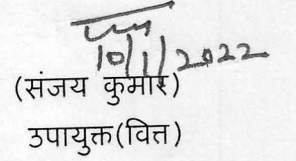 10/1/2022
(संजय कुमार)
उपायुक्त(वित्त)